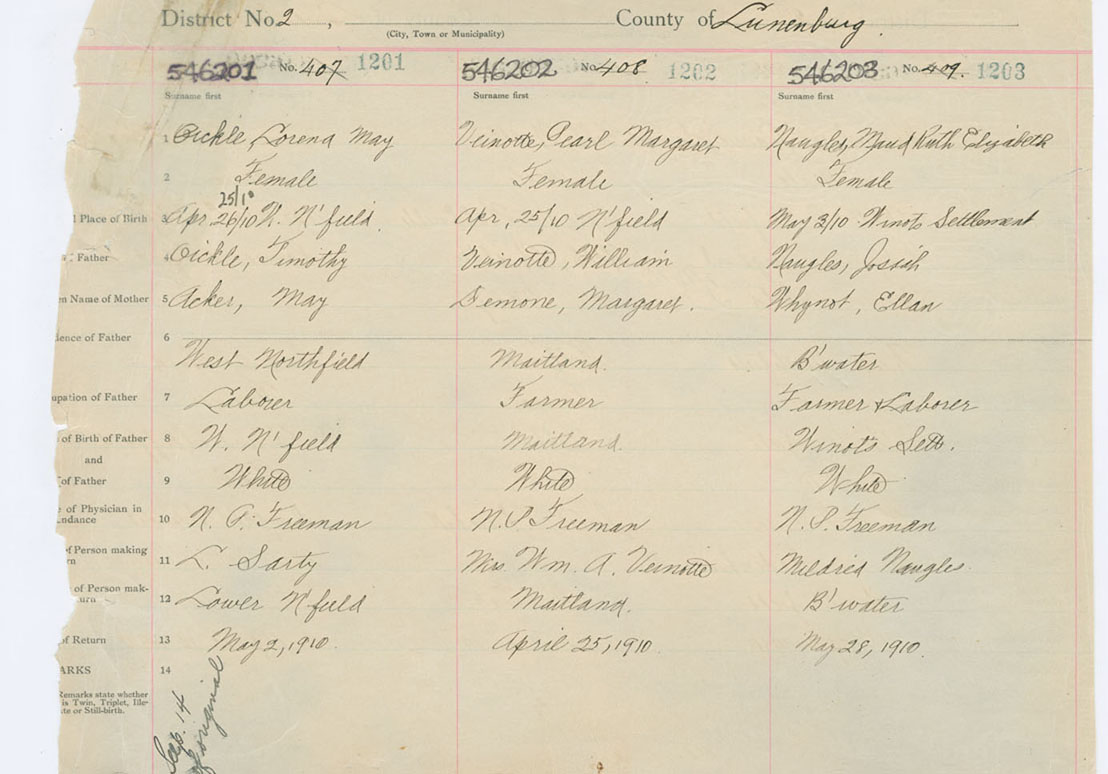 District No. 2, County of Lunenburg.
(City, Town or Municipality)
546201 No. 407 1201 546202 No. 408 1202 546203 No. 409. 1203
Surname first Surname first Surname first
1 Oickle, Lorena May Veinotte, Pearl Margaret Naugles, Maud Ruth Elizabeth
2 Female Female Female
25/10
Place of Birth 3 Apr. 26/10 W. N'field. Apr, 25/10 N'field May 3/10 Winots Settlement
Father 4 Oickle, Timothy Veinotte, William Naugles, Josiah
Name of Mother 5 Acker, May Demone, Margaret. Whynot, Ellan
dence of Father 6
West Northfield Maitland. B'water
upation of Father 7 Laborer Farmer Farmer & Laborer
of Birth of Father 8 W. N'field Maitland. Winot's Sett.
and
of Father 9 White White White
e of Physician in
ndance 10 N. P. Freeman N. P. Freeman N. P. Freeman
of Person making
rn 11 L. Sarty Mrs. Wm. A. Veinotte Mildred Naugles.
of Person mak-
urn 12 Lower N'field Maitland. B'water
of Return 13 May 2, 1910. April 25, 1910. May 28, 1910.
ARKS 14
Remarks state whether
is Twin, Triplet, Ille-
te or Still-birth.
Sap. 14
of original